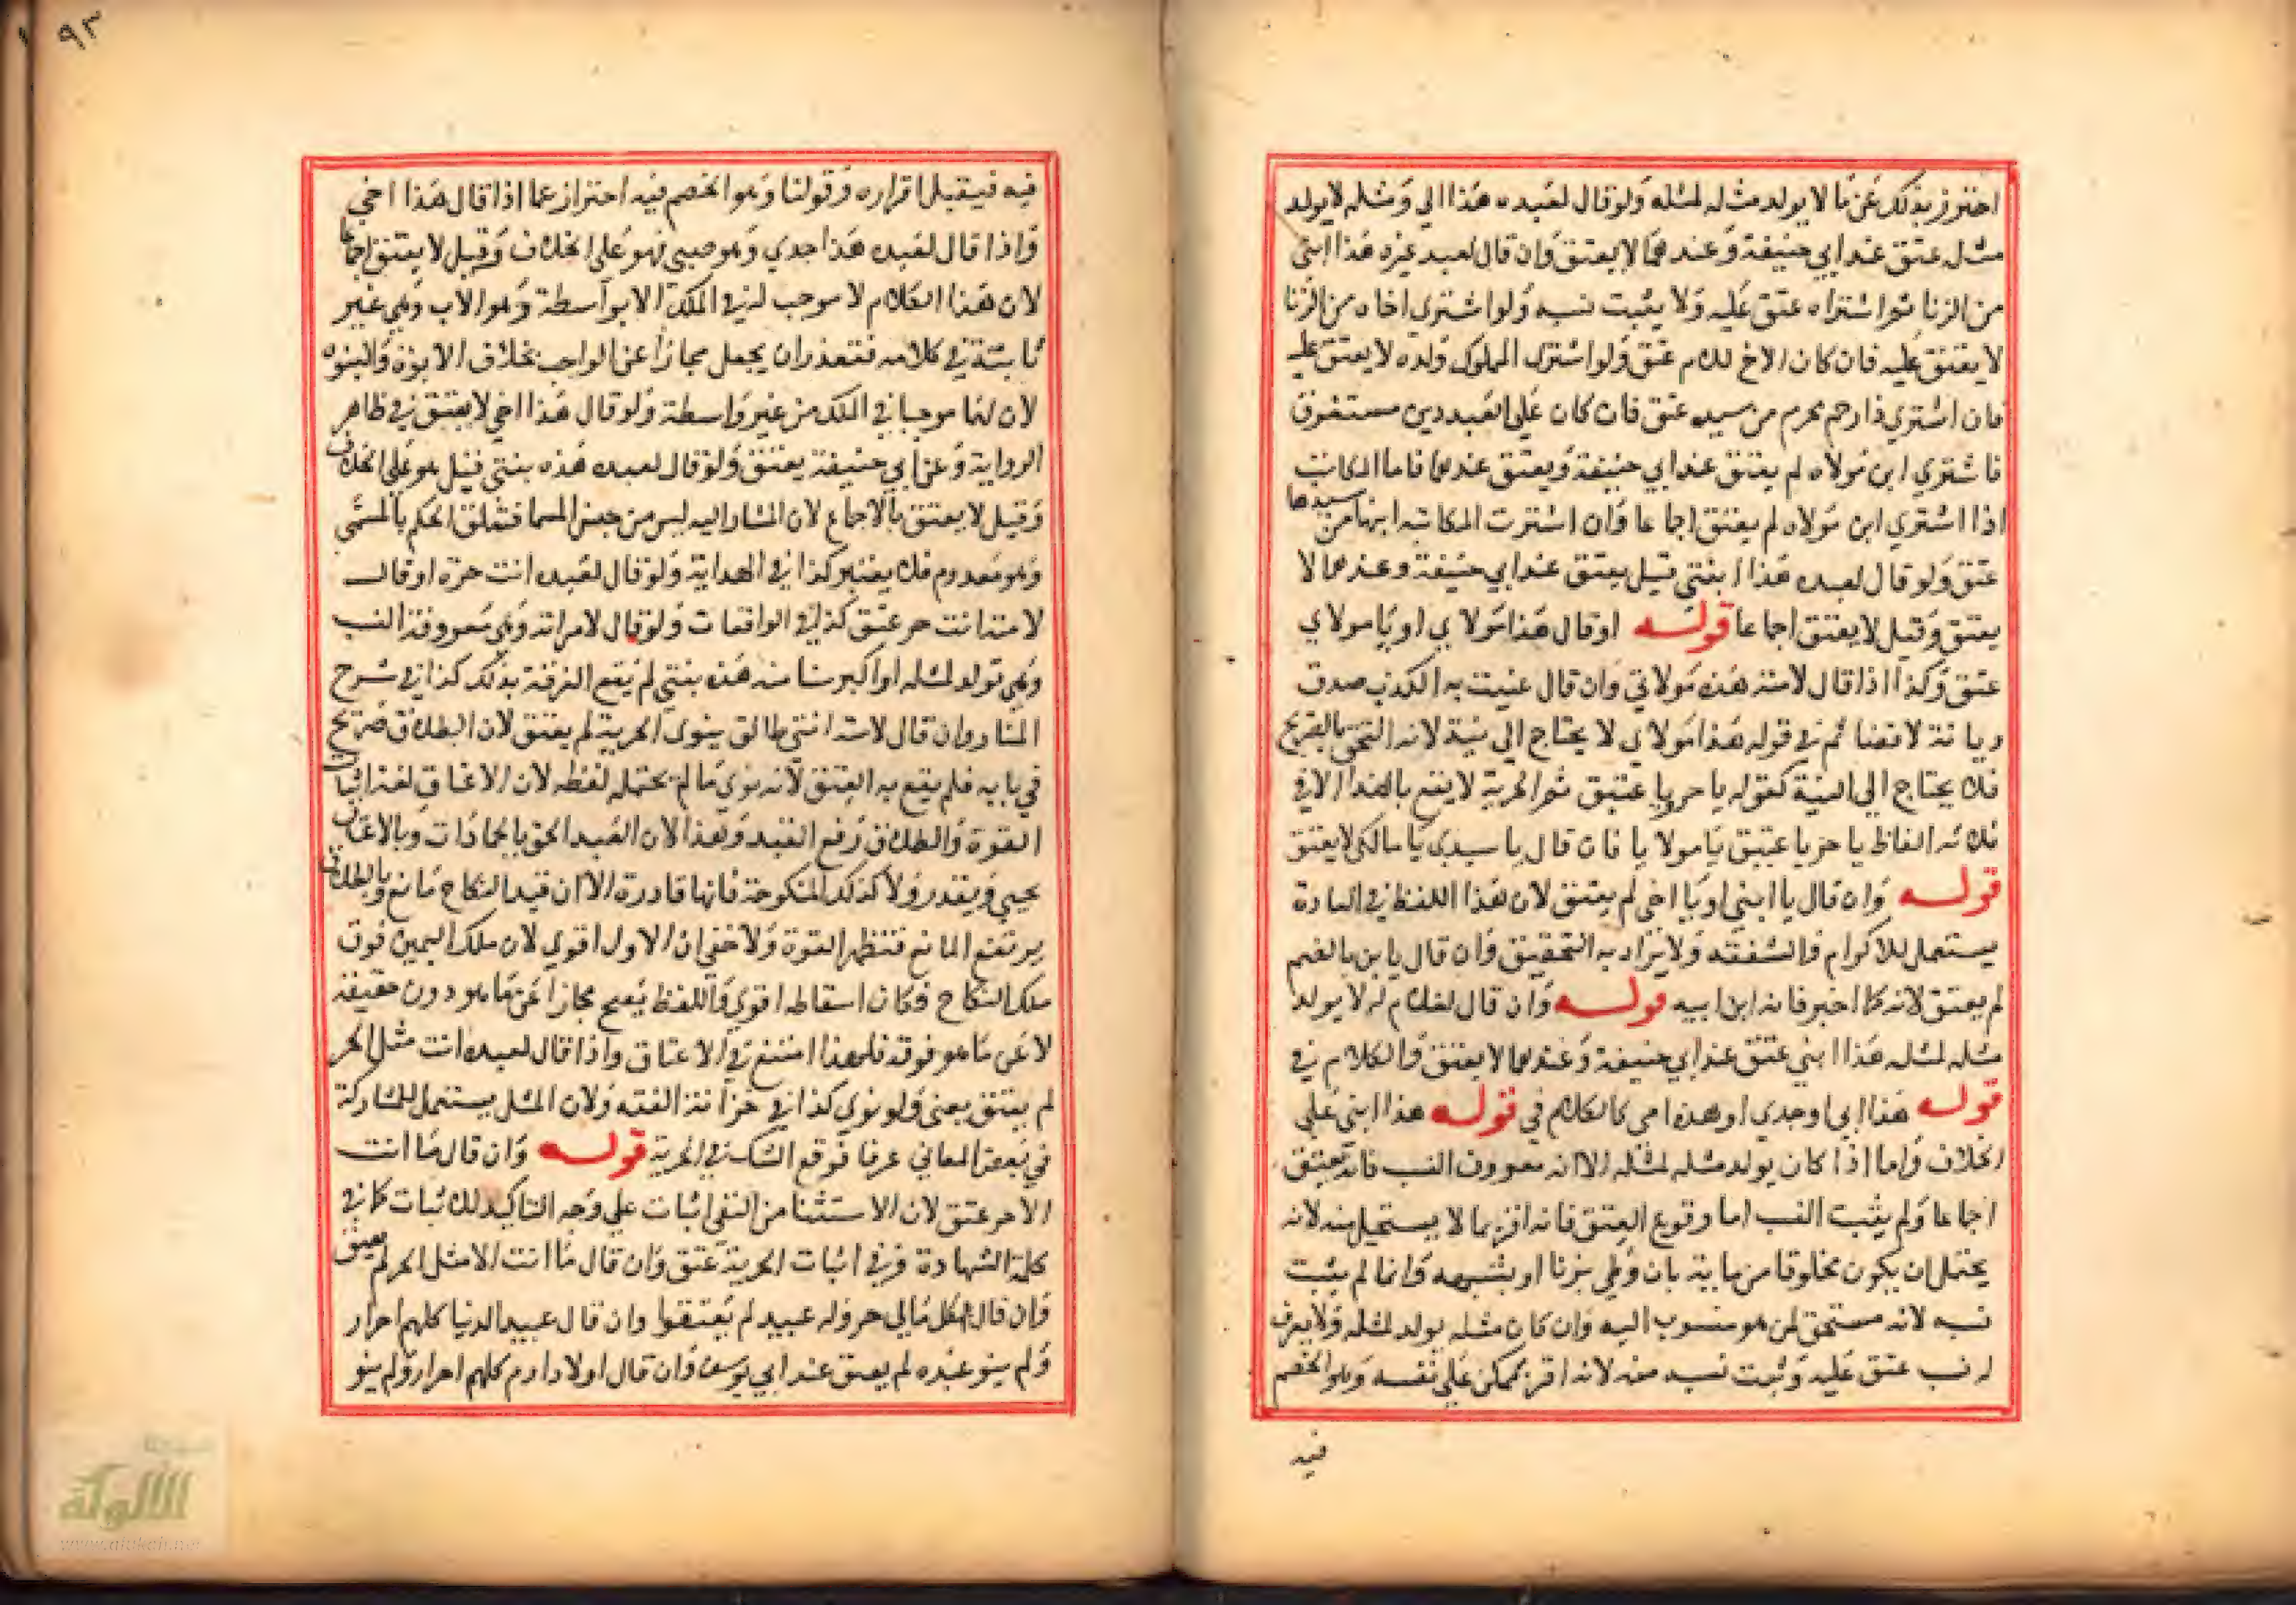 احترز بذلك عن ما لا يولد مثله لمثله ولو قال لعبده هذا ابي ومثله لا يولد
مثله عتق عند ابي حنيفة وعندهما لا يعتق وان قال لعبد غيره هذا ابني
من الزنا ثم اشتراه عتق عليه ولا يثبت نسبه ولو اشتري اخاه من الزنا
لا يعتق عليه فان كان الاخ للام عتق ولو اشتري المملوك ولده لا يعتق عليه
فان اشتري ذا رحم محرم من سيده عتق فان كان علي العبد دين مستغرق
فاشتري ابن مولاه لم يعتق عند ابي حنيفة ويعتق عندهما فاما المكاتب
اذا اشتري ابن مولاه لم يعتق اجماعا وان اشترت المكاتبه ابنها من سيدها
عتق ولو قال لعبده هذا ابنتي قيل يعتق عند ابي حنيفة وعندهما لا
يعتق وقيل لا يعتق اجماعا قوله او قال هذا مولاي او يا مولاي
عتق وكذا اذا قال لامته هذه مولاتي وان قال عنيت به الكذب صدق
ديانة لا قضا ثم في قوله هذا مولاي لا يحتاج الي نية لانه التحق بالصريح
فلا يحتاج الي النية كقوله يا حر يا عتيق ثم الحرية لا يقع بالندا الا في
ثلاثه الفاظ يا حر يا عتيق يا مولايا فان قال يا سيدي يا مالكي لا يعتق
قوله وان قال يا ابني او يا اخي لم يعتق لان هذا اللفظ في العادة
يستعمل للاكرام والشفقه ولا يراد به التحقيق وان قال يا ابن بالضم
لم يعتق لانه كما اخبر فانه ابن ابيه قوله وان قال لغلام له لا يولد
مثله لمثله هذا ابني عتق عند ابي حنيفة وعندهما لا يعتق والكلام في
قوله هذا ابي او جدي او هذه امي كالكلام في قوله هذا ابني علي
الخلاف واما اذا كان يولد مثله لمثله الا انه معروف النسب فانه يعتق
اجماعا ولم يثبت النسب اما وقوع العتق فانه اقر بما لا يستحيل منه لانه
يحتمل ان يكون مخلوقا من مايه بان وطي بزنا او بشبهه وانما لم يثبت
نسبه لانه مستحق لمن هو منسوب اليه وان كان مثله يولد لمثله ولا يعرف
له نسب عتق عليه وثبت نسبه منه لانه اقر بممكن علي نفسه وهو الخصم
فيه
٩٣
فيه فيقبل اقراره وقولنا وهو الخصم فيه احتراز عما اذا قال هذا اخي
واذا قال لعبده هذا جدي وهو صبي فهو علي الخلاف وقيل لا يعتق اجماعا
لان هذا الكلام لا موجب له في الملك الا بواسطة وهو الاب وهي غير
ثابتة في كلامه فتعذر ان يجعل مجازا عن الواجب بخلاف الابوة والبنوه
لان لهما موجبا في الملك من غير واسطة ولو قال هذا اخي لا يعتق في ظاهر
الرواية وعن ابي حنيفة يعتق ولو قال لعبده هذه بنتي قيل هو علي الخلاف
وقيل لا يعتق بالاجماع لان المشار اليه ليس من جنس المسما فتعلق الحكم بالمسمى
وهو معدوم فلا يعتبر كذا في الهداية ولو قال لعبده انت حرة او قال
لامته انت حر عتق كذا في الواقعات ولو قال لامراته وهي معروفة النسب
وهي تولد لمثله او اكبر سنا منه هذه بنتي لم يقع الفرقة بذلك كذا في شرح
المنار وان قال لامته انتي طالق ينوى الحرية لم يعتق لان الطلاق صريح
في بابه فلم يقع به العتق لانه نوي ما لم يحتمله لفظه لان الاعتاق لغة اثبات
القوة والطلاق رفع القيد وهذا لان العبد الحق بالجمادات وبالاعتاق
يحيي ويقدر ولا كذلك المنكوحة فانها قادرة الا ان قيد النكاح مانع وبالطلاق
يرتفع المانع فتظهر القوة ولا خفي ان الاول اقوي لان ملك اليمين فوق
ملك النكاح فكان اسقاطه اقوي واللفظ يصح مجازا عن ما هو دون حقيقته
لا عن ما هو فوقه فلهذا امتنع في الاعتاق واذا قال لعبده انت مثل الحر
لم يعتق يعني ولو نوي كذا في خزانة الفقه ولان المثل يستعمل للمشاركة
في بعض المعاني عرفا فوقع الشك في الحرية قوله وان قال ما انت
الا حر عتق لان الاستثنا من النفي اثبات علي وجه التاكيد للاثبات كما في
كلمة الشهادة وفي اثبات الحرية عتق وان قال ما انت الا مثل الحر لم يعتق
وان قال كل مالي حر وله عبيد لم يعتقوا وان قال عبيد الدنيا كلهم احرار
ولم ينو عبده لم يعتق عند ابي يوسف وان قال اولاد ادم كلهم احرار ولم ينو
الألوكة
www.alukah.net